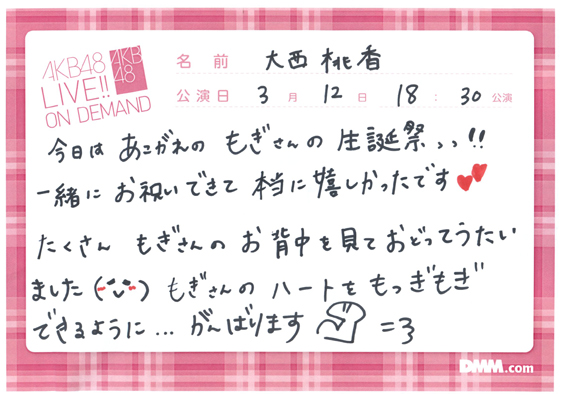 AKB48
LIVE!!
ON DEMAND
AKB
48
名前 大西桃香
公演日 3月12日 18:30公演
今日は あこがれの もぎさんの 生誕祭っっ!!
一緒に お祝いできて 本当に嬉しかったです
たくさん もぎさんの お背中を見て おどってうたい
ました(˘ᴗ˘) もぎさんの ハートを もっぎもぎ
できるように... がんばります =3
DMM.com